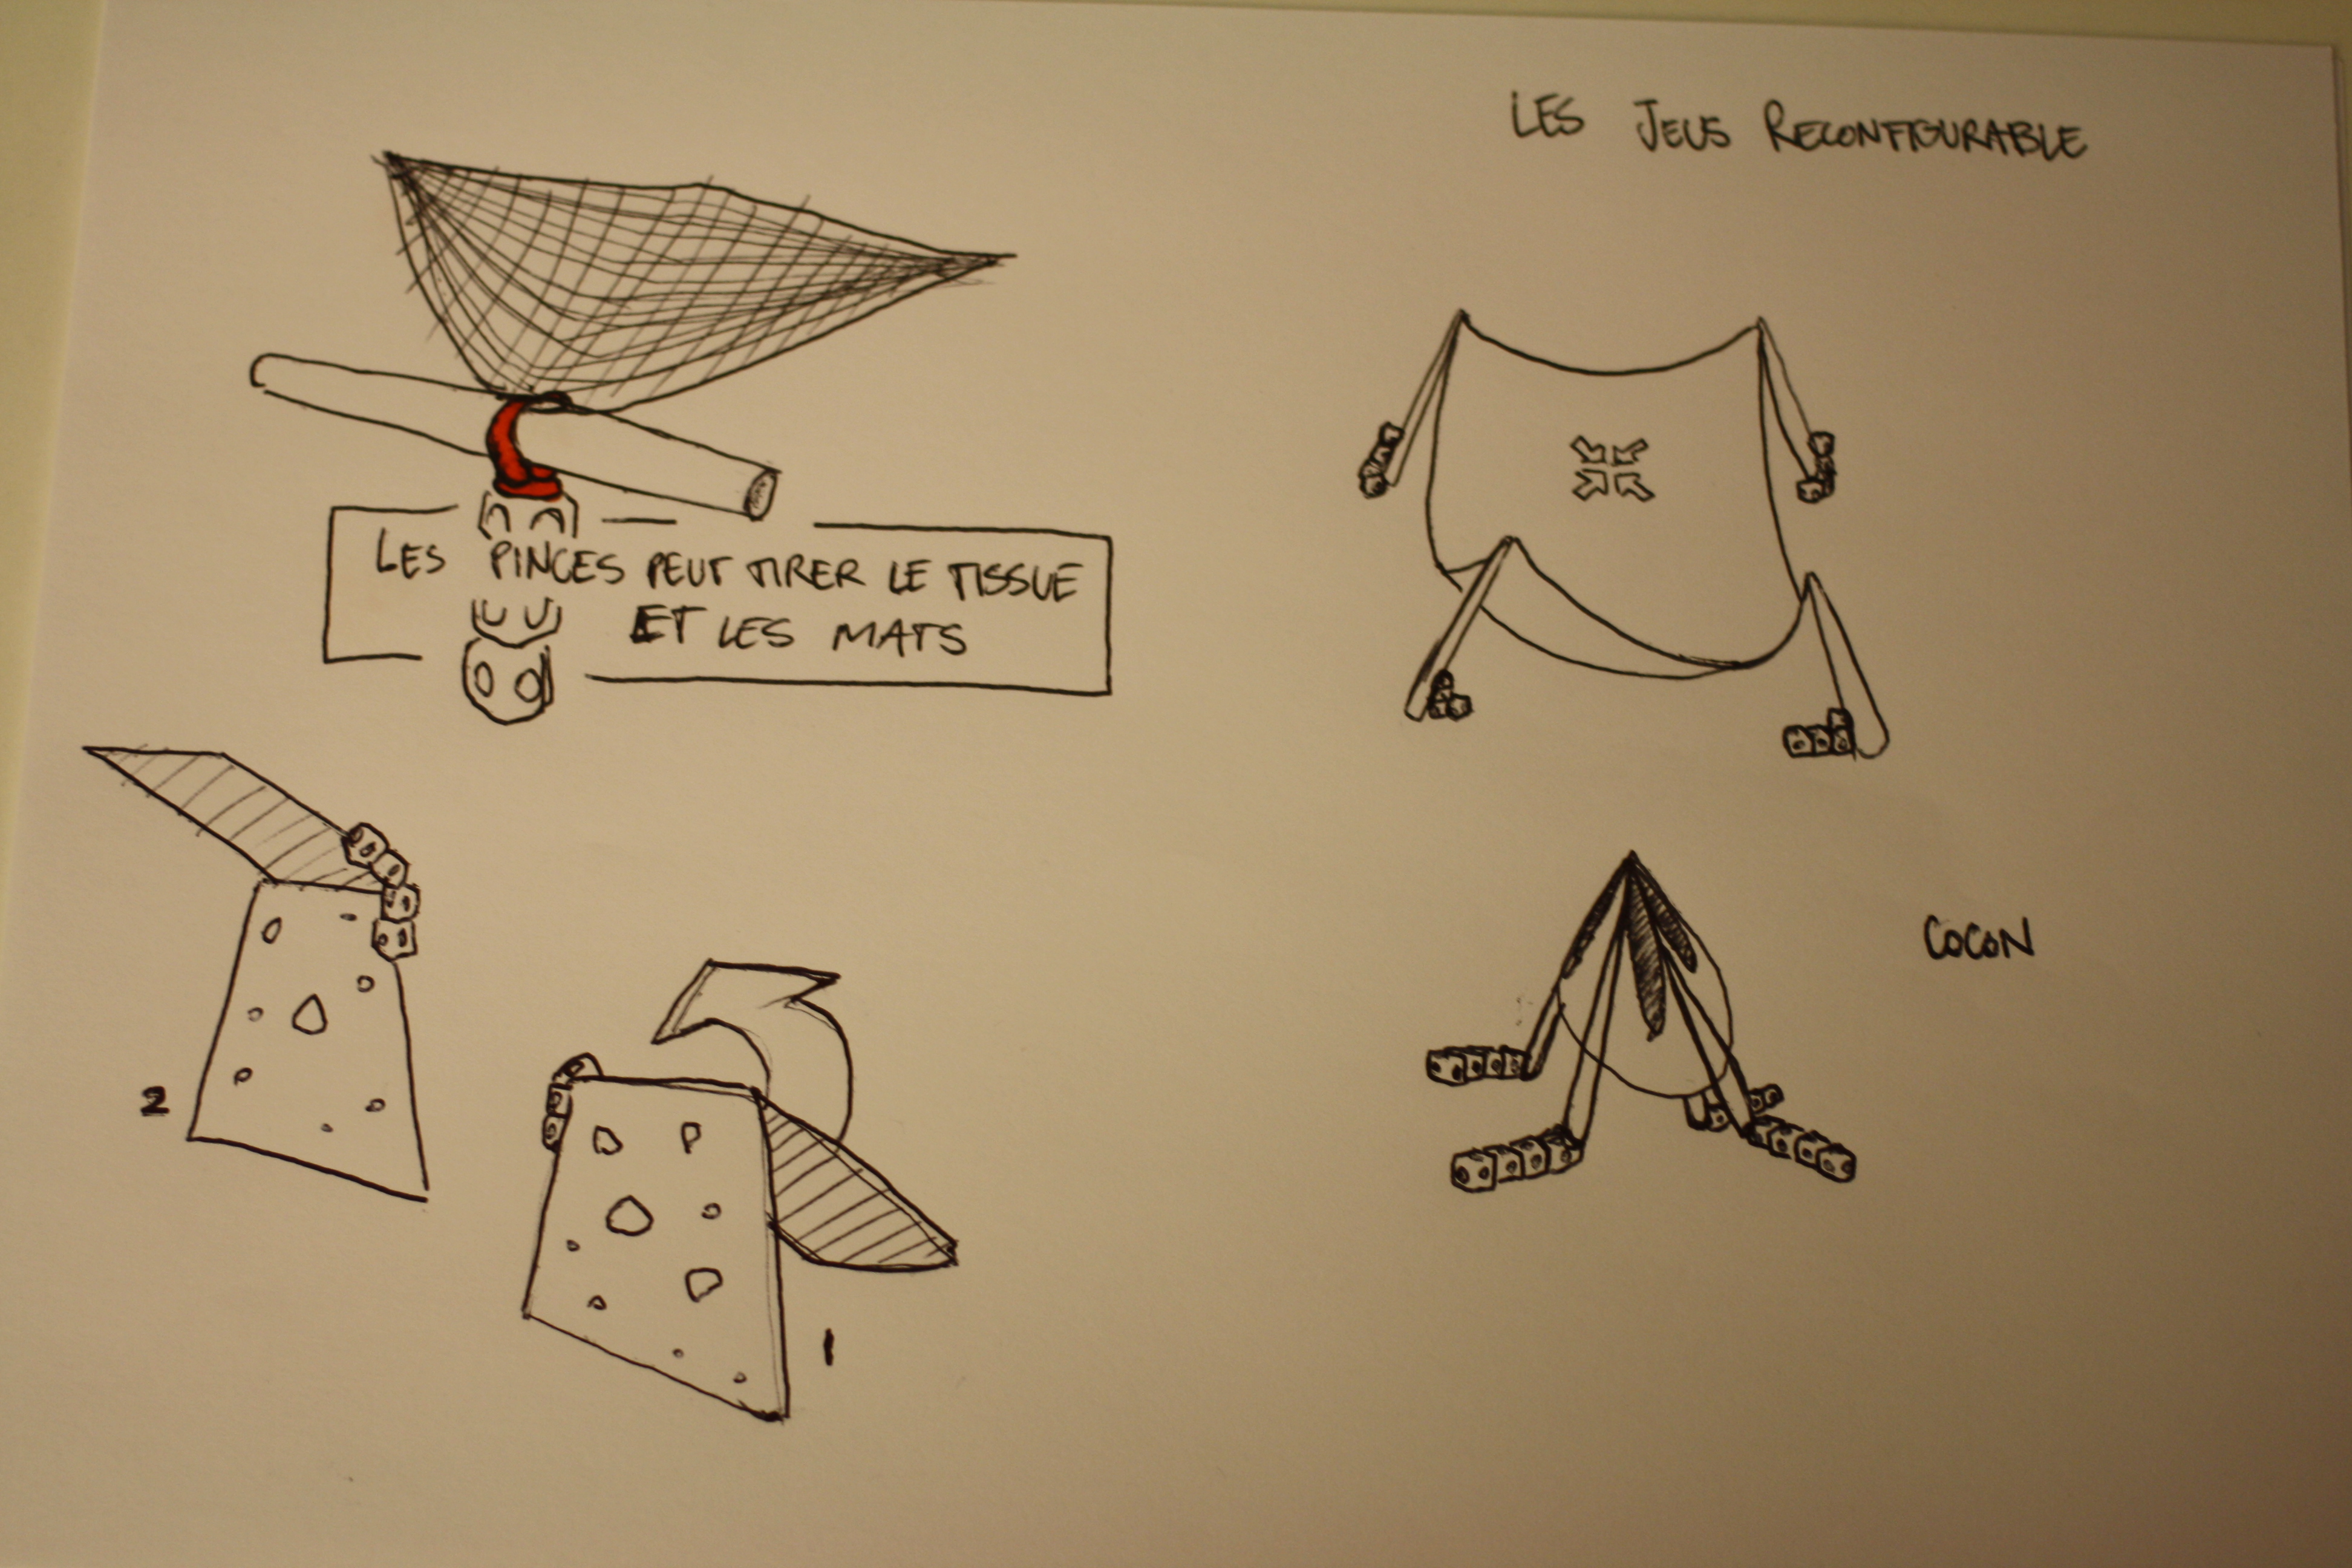 LES JEUS RECONFIGURABLE
LES PINCES PEUT TIRER LE TISSUE
ET LES MATS
COCON
2
1